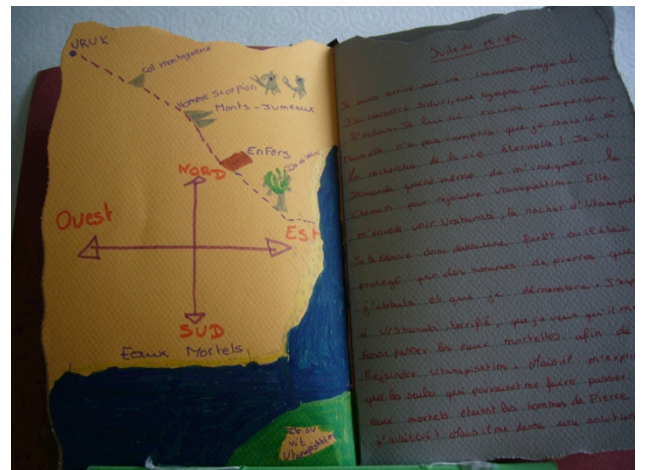 URUK
Col montagneux
Homme Scorpion
Monts-Jumeaux
Enfers
NORD
Ouest
Est
SUD
Eaux Mortels
où
vit
Utanapishtim
Suite du
Je suis arrivé sur une immense plage et
j'ai rencontré Siduri, une nymphe qui vit devant
l'océan. Je lui ai raconté mon périple,
mais elle n'a pas compris que je sois là à
la recherche de la vie éternelle ! Je lui
demande quand même de m'indiquer le
chemin pour rejoindre Utanapishtim. Elle
m'envoie voir Urshanabi, le nocher d'Utanapish
Je le trouve donc dans une forêt où il était
protégé par des hommes de pierres que
j'abbats et que je démembre. J'exp
à Urshanabi, terrifié, que je veux qu'il me
fasse passer les eaux mortelles afin de
Rejoindre Utanapishtim. Mais il m'expl
que les seules qui pouvaient me faire passer
eaux mortels étaient les hommes de Pierre
j'ai Mais il me donne une solution